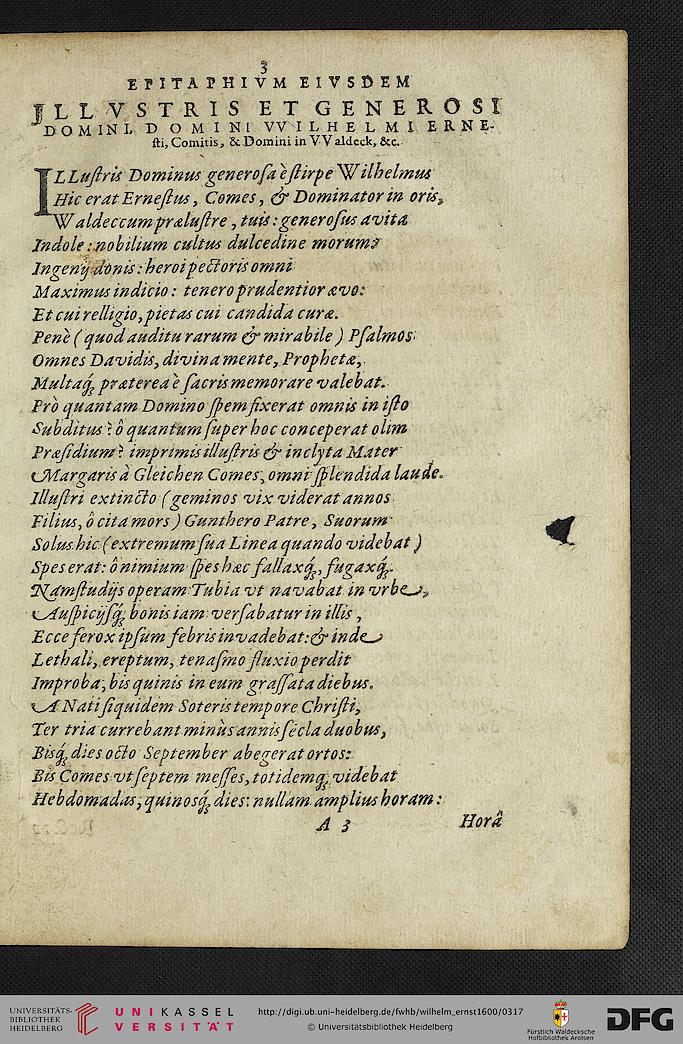 3
EPITAPHIVM EIVSDEM
JLLVSTRIS ET GENEROSI
DOMINI, DOMINI VVILHELMI ERNE-
sti, Comitis, & Domini in VValdeck, &c.
ILLustris Dominus generosa è stirpe Wilhelmus
Hic erat Ernestus, Comes, & Dominator in oris,
Waldeccum prælustre, tuis: generosus avita
Indole: nobilium cultus dulcedine morum:
Ingenij donis: heroi pectoris omni
Maximus indicio: tenero prudentior ævo:
Et cui relligio, pietas cui candida curæ.
Penè (quod auditu rarum & mirabile) Psalmos
Omnes Davidis, divina mente, Prophetæ,
Multaq́; præterea è sacris memorare valebat.
Prò quantam Domino spem fixerat omnis in isto
Subditus? ô quantum super hoc conceperat olim
Præsidium? imprimis illustris & inclyta Mater
Margaris à Gleichen Comes, omni splendida laude.
Illustri extincto (geminos vix viderat annos
Filius, ô cita mors) Gunthero Patre, Suorum
Solus hic (extremum sua Linea quando videbat)
Spes erat: ô nimium spes hæc fallaxq́;, fugaxq́;.
Nam studijs operam Tubia vt navabat in vrbe,
Auspicijsq́; bonis iam versabatur in illis,
Ecce ferox ipsum febris invadebat: & inde
Lethali, ereptum, tenasmo fluxio perdit
Improba, bis quinis in eum grassata diebus.
A Nati siquidem Soteris tempore Christi,
Ter tria currebant minùs annis secla duobus,
Bisq́; dies octo September abegerat ortos:
Bis Comes vt septem messes, totidemq́; videbat
Hebdomadas, quinosq́; dies: nullam amplius horam:
A 3 Horâ
UNIVERSITÄTS-
BIBLIOTHEK
HEIDELBERG
UNIKASSEL
VERSITÄT
http://digi.ub.uni-heidelberg.de/fwhb/wilhelm_ernst1600/0317
© Universitätsbibliothek Heidelberg
Fürstlich Waldecksche
Hofbibliothek Arolsen
DFG